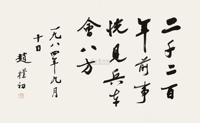 二千二百
年前事
恍见兵车
会八方
一九八四年九月
十日
赵朴初